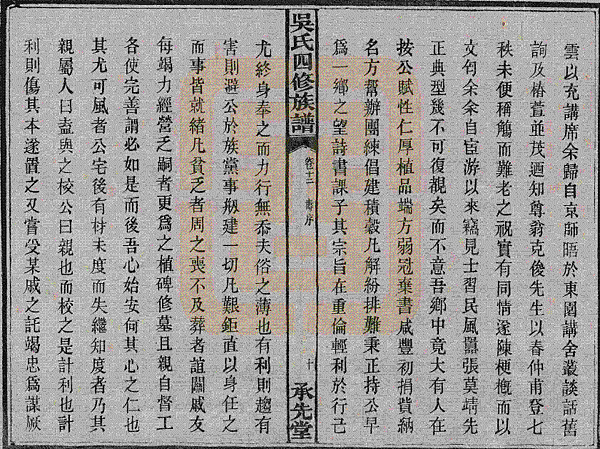 雲以充講席余歸自京師晤於東園講舍叢談話舊
詢及椿萱並茂迺知尊翁克俊先生以春仲甫登七
秩未便稱觴而難老之祝實有同情遂陳梗概而以
文匄余余自宦游以來竊見士習民風囂張莫靖先
正典型幾不可復覩矣而不意吾鄉中竟大有人在
按公賦性仁厚植品端方弱冠棄書咸豐初捐貲納
名方幫辦團練倡建積穀凡解紛排難秉正持公早
爲一鄉之望詩書課子其宗旨在重倫輕利於行己
吳氏四修族譜
卷十二
壽序
十
承先堂
尤終身奉之而力行無忝夫俗之薄也有利則趨有
害則避公於族黨事剏建一切凡艱鉅直以身任之
而事皆就緒凡貧乏者周之喪不及葬者誼關戚友
每竭力經營乏嗣者更爲之植碑修墓且親自督工
各使完善謂必如是而後吾心始安何其心之仁也
其尤可風者公宅後有樹未度而失繼知度者乃其
親屬人曰盍與之校公曰親也而校之是計利也計
利則傷其本遂置之又嘗受某戚之託竭忠爲謀厥